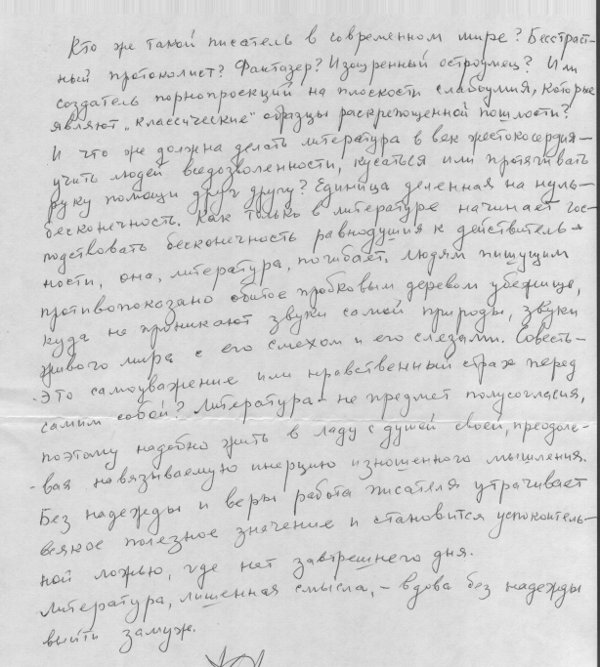 Кто же такой писатель в современном мире? Бесстраст-
ный протоколист? Фантазер? Изощренный остроумец? Или
создатель порнопроекций на плоскости слабоумия, которые
являют „классические" образцы раскрепощенной пошлости?
И что же должна делать литература в век жестокосердия –
учить людей вседозволенности, кусаться или протягивать
руку помощи друг другу? Единица деленная на нуль –
бесконечность. Как только в литературе начинает гос-
подствовать бесконечность равнодушия к действитель-
ности, она, литература, погибает. Людям пишущим
противопоказано обитое пробковым деревом убежище,
куда не проникают звуки самой природы, звуки
живого мира с его смехом и его слезами. Совесть –
- это самоуважение или нравственный страх перед
самим собой? Литература – не предмет полусогласия,
поэтому надобно жить в ладу с душой своей, преодоле-
- вая навязываемую инерцию изношенного мышления.
Без надежды и веры работа писателя утрачивает
всякое полезное значение и становится успокоитель-
ной ложью, где нет завтрешнего дня.
Литература, лишенная смысла, – вдова без надежды
выйти замуж.